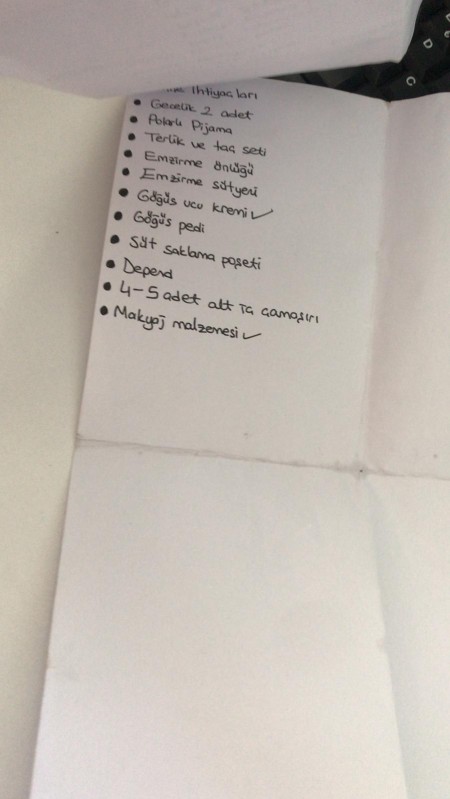 İhtiyaçları
• Gecelik 2 adet
• Polarlı Pijama
• Terlik ve taç seti
• Emzirme önlüğü
• Emzirme sütyeni
• Göğüs ucu kremi ✓
• Göğüs pedi
• Süt saklama poşeti
• Depend
• 4-5 adet alt iç çamaşırı
• Makyaj malzemesi ✓
D
C